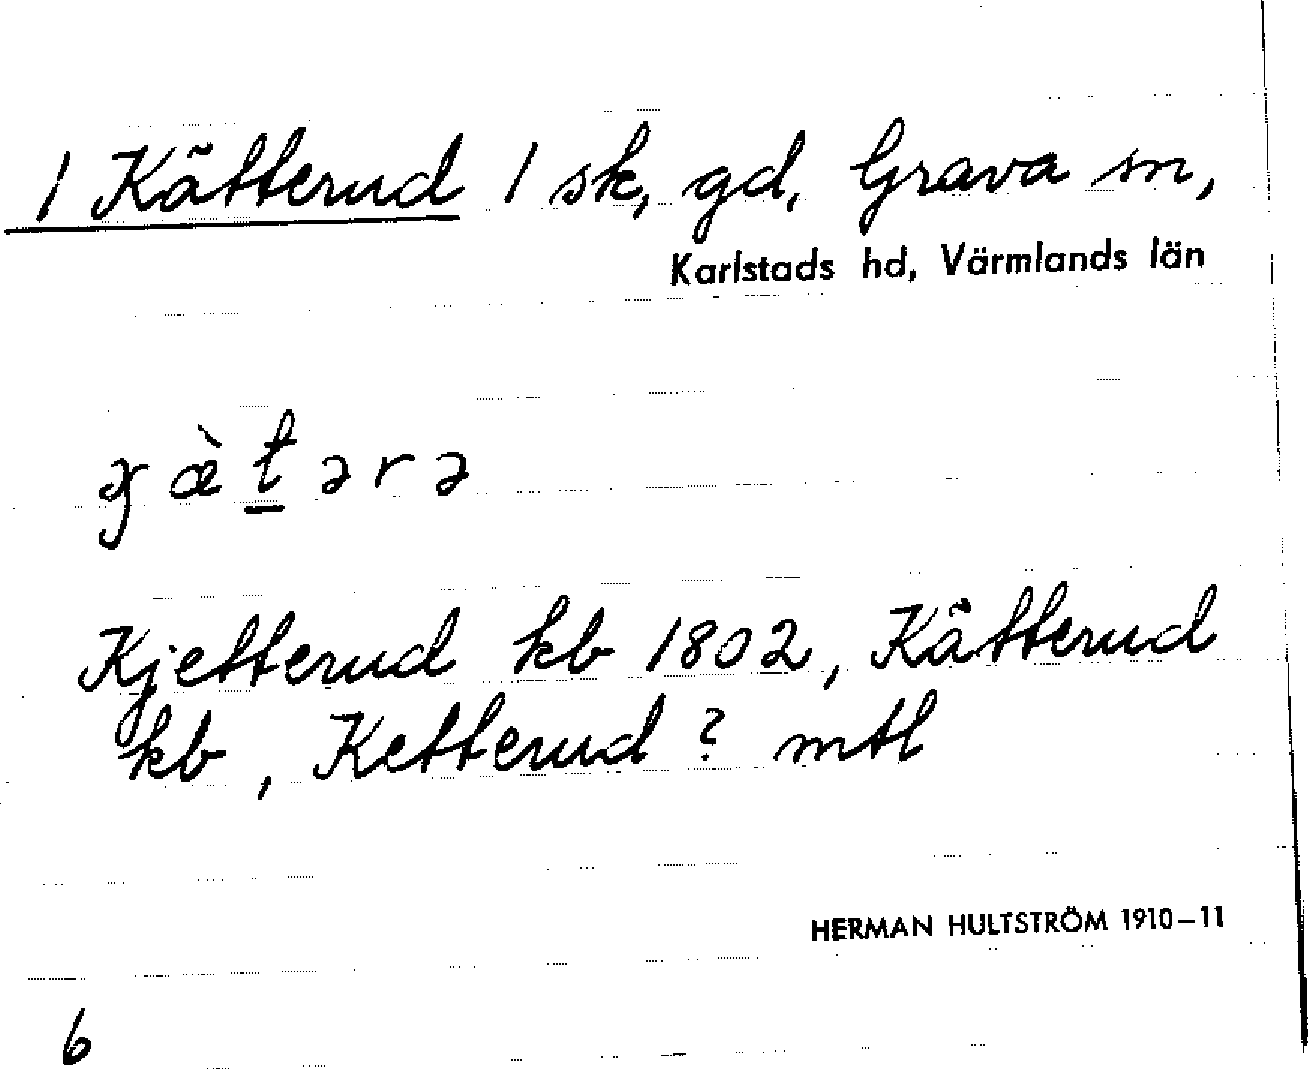 / Kätterud / sk, gd, Grava sn,
Karlstads hd, Värmlands län
Kjetterud kb 1802, Kätterud
kb, Ketterud ? mtl
HERMAN HULTSTRÖM 1910–11
6